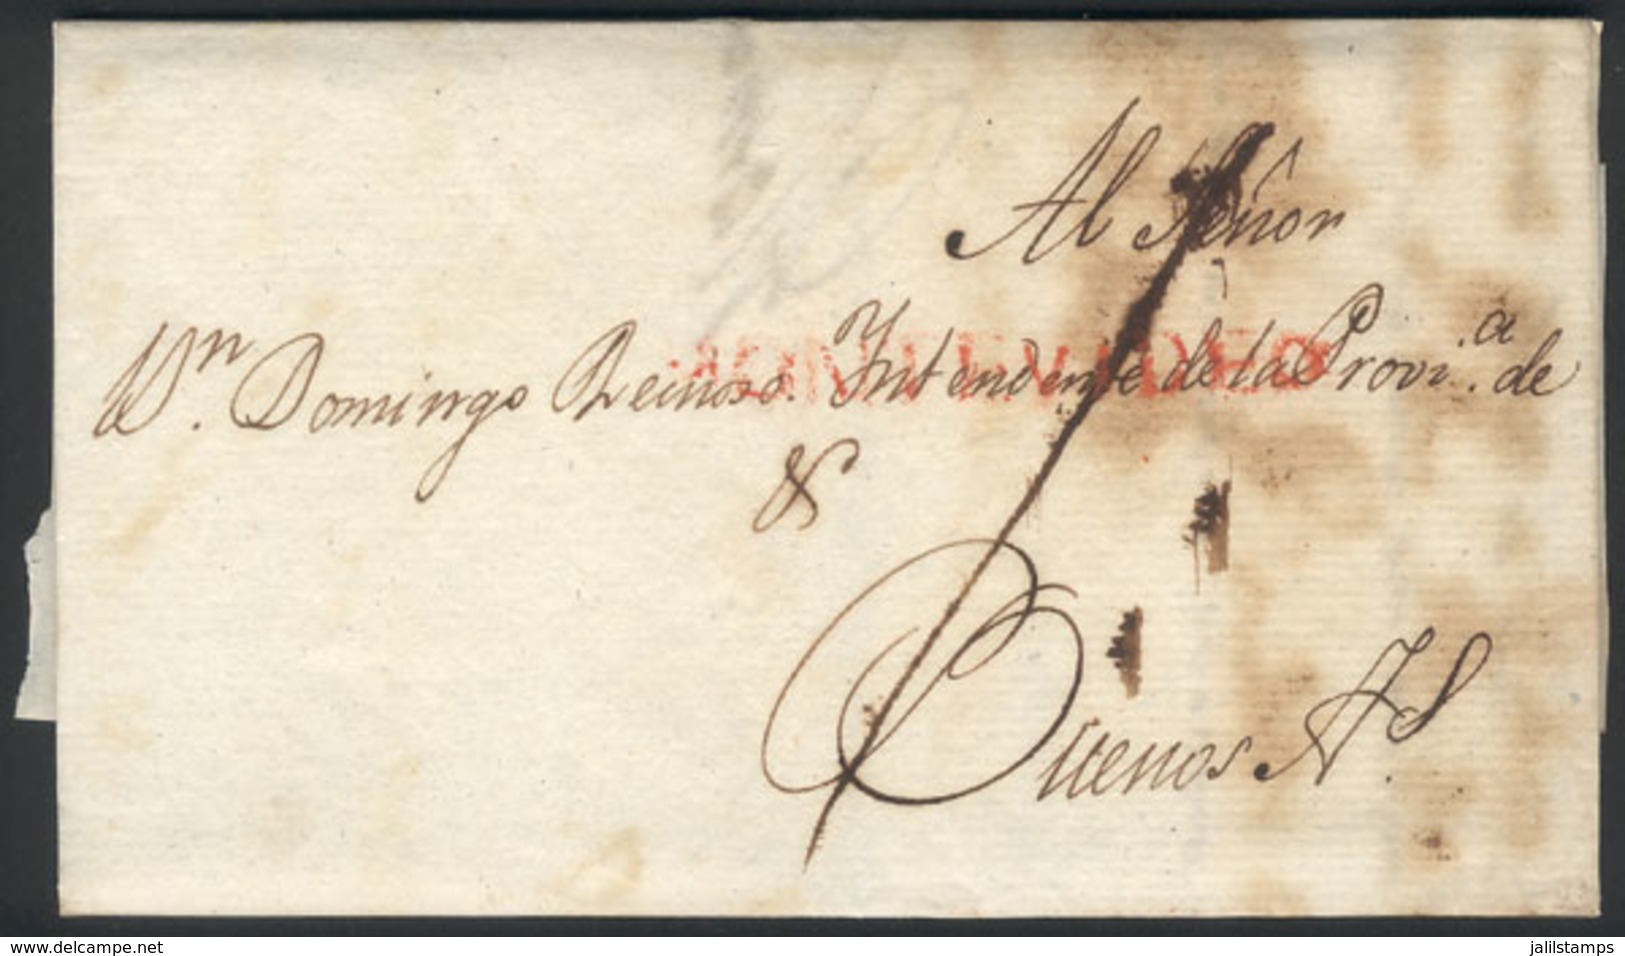 Al Señor
Dn. Domingo Reinoso. Yntendente de la Provi.a de
MONTEVIDEO
&
Buenos As.
www.delcampe.net
jalilstamps